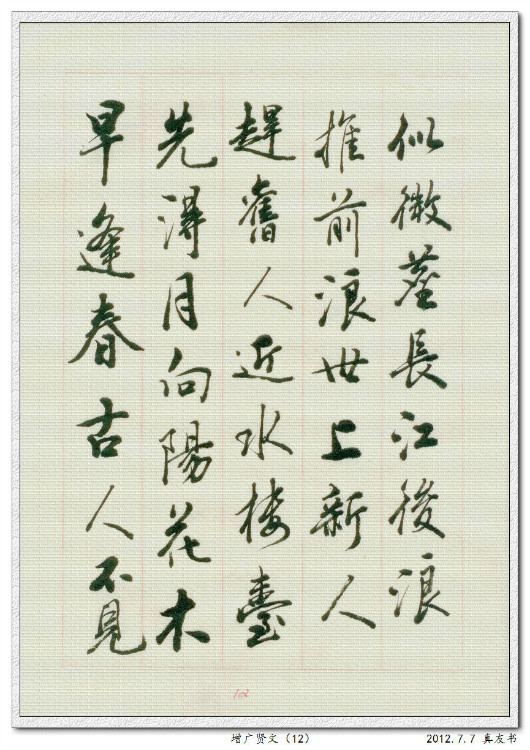 似微塵長江後浪
推前浪世上新人
趕舊人近水楼臺
先淂月向陽花木
早逢春古人不見
102
增广贤文（12）
2012.7.7 真友书